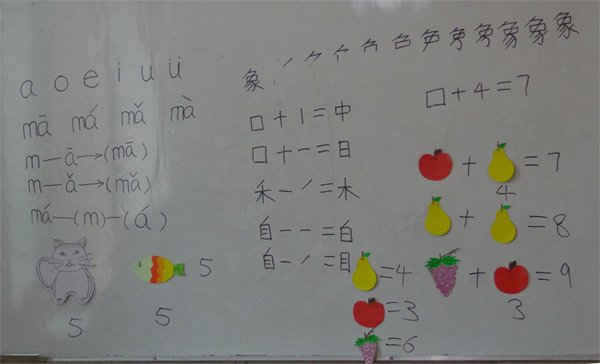 a o e i u ü
mā má mǎ mà
m—ā→(mā)
m—ǎ→(mǎ)
má—(m)—(á)
5
5
5
象: 丿 ⺈ 象
口+丨=中
口+一=日
禾-丿=木
自-一=白
自-丿=目
=4
=3
=6
□+4=7
+ =7
4
+ =8
+ =9
3